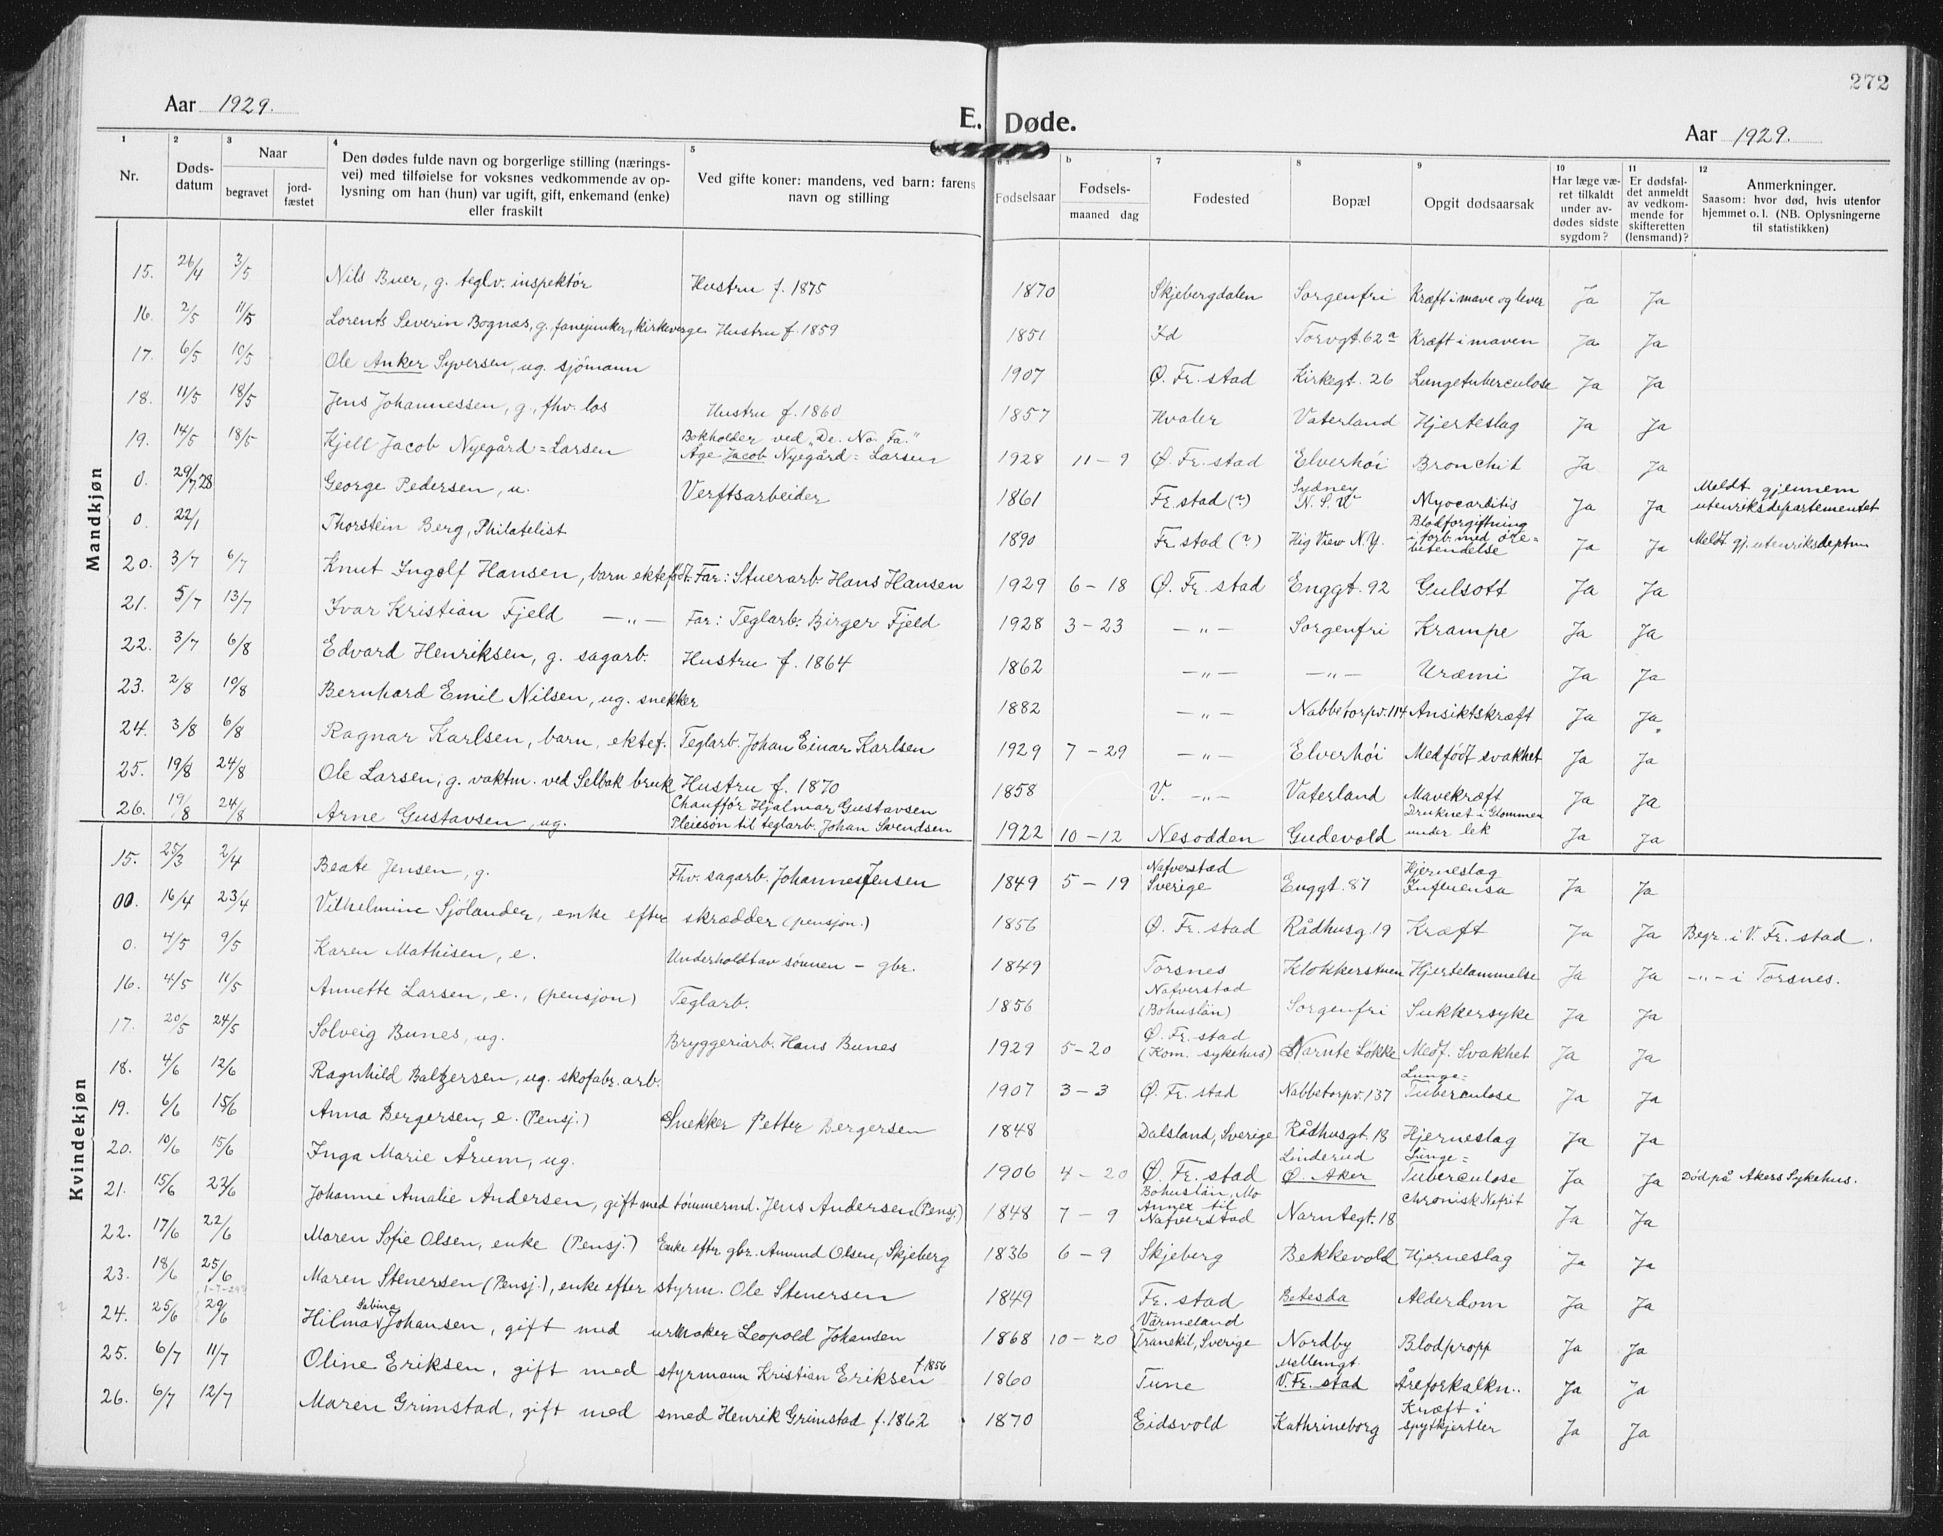 272
Aar 1929.
E. Døde.
Aar 1929.
1 2 3 4 5 6 a b 7 8 9 10 11 12
Nr.
Døds-
datum
Naar
begravet
jord-
fæstet
Den dødes fulde navn og borgerlige stilling (nærings-
vei) med tilføielse for voksnes vedkommende av op-
lysning om han (hun) var ugift, gift, enkemand (enke)
eller fraskilt
Ved gifte koner: mandens, ved barn: farens
navn og stilling
Fødselsaar
Fødsels-
maaned dag
Fødested
Bopæl
Opgit dødsaarsak
Har læge væ-
ret tilkaldt
under av-
dødes sidste
sygdom?
Er dødsfal-
det anmeldt
av vedkom-
mende for
skifteretten
(lensmand)?
Anmerkninger.
Saasom: hvor død, hvis utenfor
hjemmet o. l. (NB. Oplysningerne
til statistikken)
Mandkjøn
15. 26/4 3/5 Nils Buer, g. teglv. inspektør Hustru f. 1875 1870 Skjebergdalen Sorgenfri Kræft i mave og lever Ja Ja
16. 2/5 11/5 Lorents Severin Bognæs, g. fanejunker, kirkeverge Hustru f. 1859 1851 Id Torvgt. 62a Kræft i maven Ja Ja
17. 6/5 10/5 Ole Anker Syversen, ug. sjömann 1907 Ø. Fr. stad Kirkegt. 26 Lungetuberculose Ja Ja
18. 11/5 18/5 Jens Johannessen, g., fhv. los Hustru f. 1860 1857 Hvaler Vaterland Hjerteslag Ja Ja
19. 14/5 18/5 Kjell Jacob Nyegård=Larsen Bokholder ved „De. No. Fa."
Åge Jacob Nyegård=Larsen 1928 11-9 Ø. Fr. stad Elverhöi Bronchit Ja Ja
0. 29/7 28 George Pedersen, u. Verftsarbeider 1861 Fr. stad (?) Sydney
N. S. W Myocarditis Ja Ja Meldt gjennem
utenriksdepartementet
0. 22/1 Thorstein Berg, Philatelist 1890 Fr. stad (?) Hig View N.Y. Blodforgiftning
i forb. med öre=
betendelse Ja Ja Meldt gj. utenriksdeptm
20. 3/7 6/7 Knut Ingolf Hansen, barn ektefödt. Far: Stuerarb. Hans Hansen 1929 6-18 Ø. Fr. stad Enggt. 92 Gulsott Ja Ja
21. 5/7 13/7 Ivar Kristian Fjeld —„— Far: Teglarb. Birger Fjeld 1928 3-23 —„— Sorgenfri Krampe Ja Ja
22. 3/7 6/8 Edvard Henriksen, g. sagarb. Hustru f. 1864 1862 —„— —„— Uræmi Ja Ja
23. 2/8 10/8 Bernhard Emil Nilsen, ug. snekker 1882 —„— Nabbetorpv. 114 Ansiktskræft Ja Ja
24. 3/8 6/8 Ragnar Karlsen, barn, ektef. Teglarb. Johan Einar Karlsen 1929 7-29 —„— Elverhöi Medfödt svakhet Ja Ja
25. 19/8 24/8 Ole Larsen, g. vaktm. ved Selbak bruk Hustru f. 1870 1858 V. —„— Vaterland Mavekræft Ja Ja
26. 19/8 24/8 Arne Gustavsen, ug. Chauffør Hjalmar Gustavsen
Pleiesön til teglarb. Johan Svendsen 1922 10-12 Nesodden Gudevold Druknet i Glommen
under lek Ja Ja
Kvindekjøn
15. 25/3 2/4 Beate Jensen, g. Fhv. sagarb. Johannes Jensen 1849 5-19 Nafverstad
Sverige Enggt. 87 Hjerneslag
Influensa Ja Ja
00. 16/4 23/4 Vilhelmine Sjölander, enke efter skrædder (pensjon.) 1856 Ø. Fr. stad Rådhusg. 19 Kræft Ja Ja Begr. i V. Fr. stad.
0. 4/5 9/5 Karen Mathisen, e. Underholdt av sönnen - gbr. 1849 Torsnes Klokkerstuen Hjertelammelse Ja Ja —„— i Torsnes.
16. 4/5 11/5 Annette Larsen, e., (pensjon) Teglarb. 1856 Nafverstad
(Bohuslän) Sorgenfri Sukkersyke Ja Ja
17. 20/5 24/5 Solveig Bunes, ug. Bryggeriarb. Hans Bunes 1929 5-20 Ø. Fr. stad
(Kom. sykehus) Narnte Løkke Medf. Svakhet Ja Ja
18. 4/6 12/6 Ragnhild Baltzersen, ug. skofabr. arb. 1907 3-3 Ø. Fr. stad Nabbetorpv. 137 Lunge=
Tuberculose Ja Ja
19. 6/6 15/6 Anna Bergersen, e. (Pensj.) Snekker Petter Bergersen 1848 Dalsland, Sverige Rådhusgt. 18 Hjerneslag Ja Ja
20. 10/6 15/6 Inga Marie Årum, ug. 1906 4-20 Ø. Fr. stad Linderud
Ø. Aker Lunge=
Tuberculose Ja Ja Död på Akers Sykehus.
21. 15/6 22/6 Johanne Amalie Andersen, gift med tömmermd. Jens Andersen (Pensj.) 1848 7-9 Bohuslän, Mo
Annex til
Nafverstad Narntegt. 18 Chronisk Nefrit Ja Ja
22. 17/6 22/6 Maren Sofie Olsen, enke (Pensj.) Enke efter gbr. Amund Olsen, Skjeberg 1836 6-9 Skjeberg Bekkevold Hjerneslag Ja Ja
23. 18/6 25/6 Maren Stenersen (Pensj.), enke efter styrm. Ole Stenersen 1849 Fr. stad Betesda Alderdom Ja Ja
24. 25/6 29/6 Hilma Sabina Johansen, gift med urmaker Leopold Johansen 1868 10-20 Värmeland
Tranekil, Sverige Nordby Blodpropp Ja Ja
25. 6/7 11/7 Oline Eriksen, gift med styrmann Kristian Eriksen f 1856 1860 Tune Mellemgt.
V. Fr. stad Åreforkalkn.. Ja Ja
26. 6/7 12/7 Maren Grimstad, gift med smed Henrik Grimstad f. 1862 1870 Eidsvold Kathrineborg Kræft i
spytkjertler Ja Ja